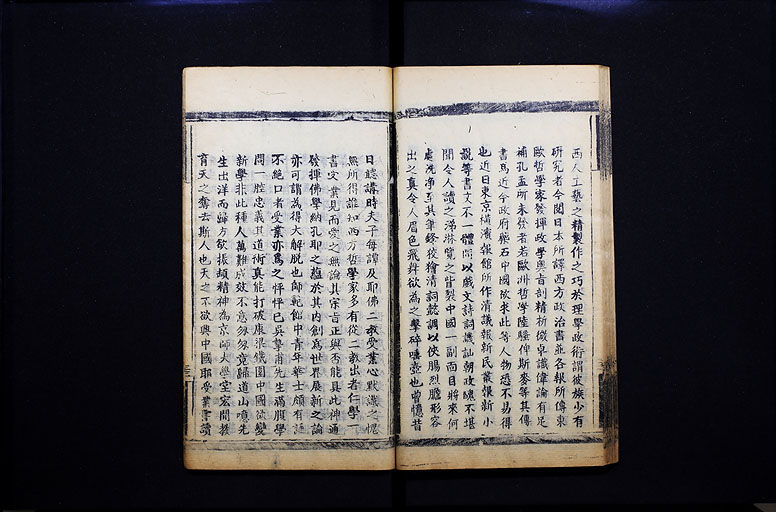 西人工藝之精製作之巧於理學政術謂彼族少有
研究者今閱日本所譯西方政治書並各報所傳東
歐哲學家發揮政學奥旨剖精析微卓識偉論有足
補孔孟所未發者若歐洲哲學陸騷俾斯麥等其傳
書爲近今政府藥石中國啟來此等人物恐不易得
也近日東京橫濱報館所作清議報新民叢報新小
說等書文不一體間以戲文詩詞譏訕朝政醜不堪
聞令人讀之涕淋覽之眥裂中國一副面目將來何
處洗淨至其筆鋒狡獪清詞懿調以俠腸烈膽形容
出之真令人眉色飛舞欲為之擊碎唾壺也曾憶昔
日聽講時夫子每譚及耶佛二教受業心默識之愧
無所得誰知西方哲學家多有從二教出者仁學一
書受業見而愛之無論其宗旨正與否能具此神通
發揮佛學納孔耶之蘊於其内創為世界展新之論
亦可謂為得大解脫也師範館中青年舉士頗有誦
不絕口者受業亦為之怦怦已吳摯甫先生滿腹學
問一腔忠義其道術真能打破康梁鐵圍中國欲變
新學非此種人萬難成效不意匆匆竟歸道山噫先
生出洋而歸方欲振頓精神為京師大學堂宏開教
育天之奪去斯人也天之不欲興中國耶受業書讀